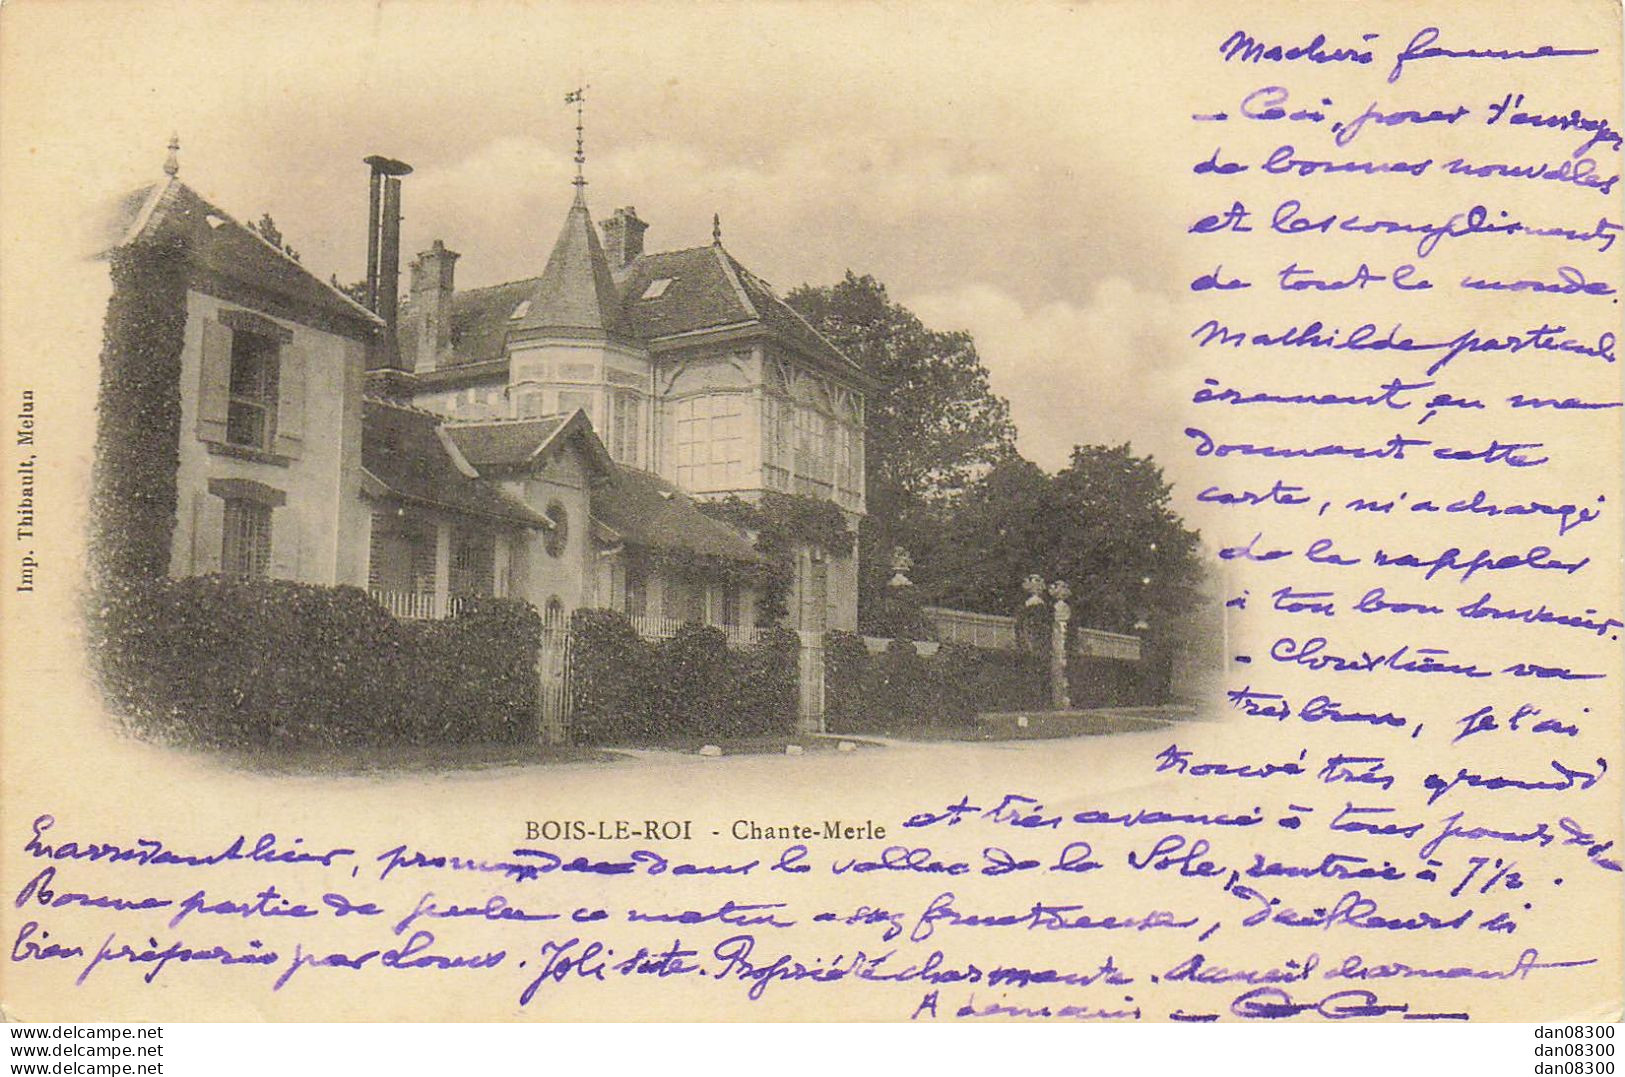 Ma chère femme
- Ceci, pour t'envoyer
de bonnes nouvelles
et les compliments
de tout le monde.
Mathilde particuli
èrement, en me
donnant cette
carte, m'a chargé
de la rappeler
à ton bon souvenir.
- Christian va
très bien, je l'ai
trouvé très grandi
et très avancé à tous points de vue
En arrivant hier, promenade dans la vallée de la Sole, rentrée à 7 1/2.
Bonne partie de ce matin assez fructueuse, d'ailleurs si
bien préparée par Louis. Joli site. Propriété charmante. Accueil charmant
A demain -
BOIS-LE-ROI - Chante-Merle
Imp. Thibault, Melun
dan08300
dan08300
dan08300
www.delcampe.net
www.delcampe.net
www.delcampe.net